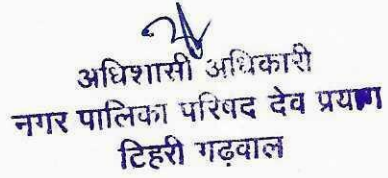 अधिशासी अधिकारी
नगर पालिका परिषद देव प्रयाग
टिहरी गढ़वाल